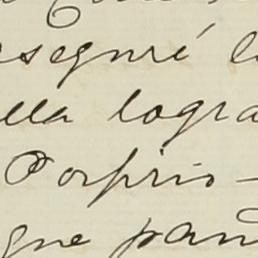 seguré l
lla logra
Porfirio-
que pan